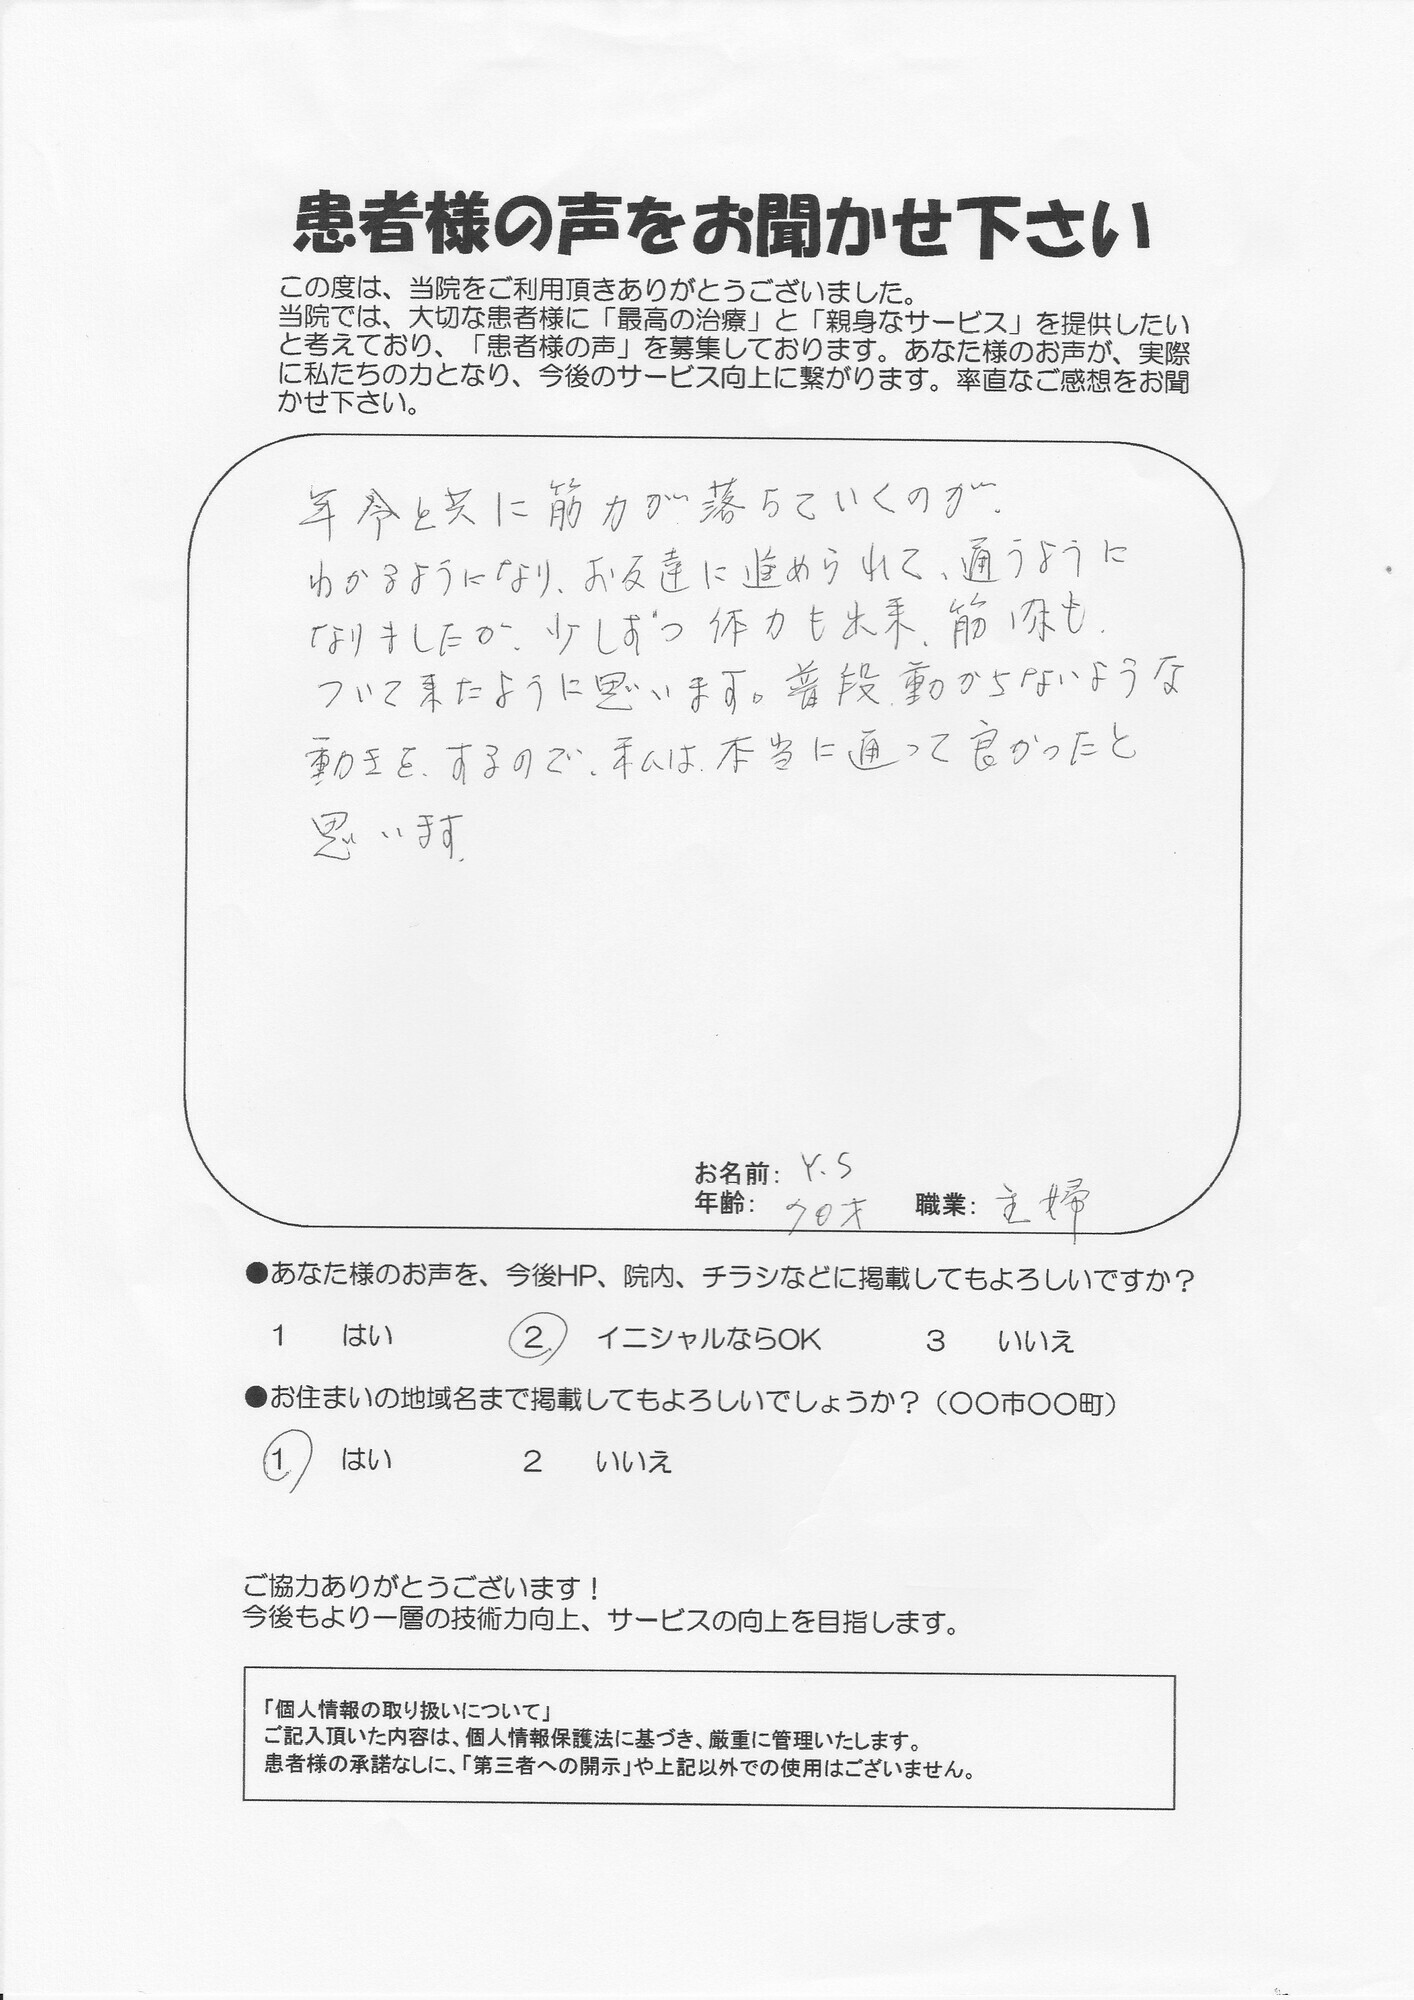 患者様の声をお聞かせ下さい
この度は、当院をご利用頂きありがとうございました。
当院では、大切な患者様に「最高の治療」と「親身なサービス」を提供したい
と考えており、「患者様の声」を募集しております。あなた様のお声が、実際
に私たちの力となり、今後のサービス向上に繋がります。率直なご感想をお聞
かせ下さい。
年令と共に筋力が落ちていくのが、
わかるようになり、お友達に進められて、通うように
なりましたが、少しずつ体力も出来、筋肉も、
ついて来たように思います。普段、動からないような
動きを、するので、私は、本当に通って良かったと
思います。
お名前: Y.S
年齢: 70才 職業: 主婦
●あなた様のお声を、今後HP、院内、チラシなどに掲載してもよろしいですか？
1 はい 2 イニシャルならOK 3 いいえ
●お住まいの地域名まで掲載してもよろしいでしょうか？（〇〇市〇〇町）
1 はい 2 いいえ
ご協力ありがとうございます！
今後もより一層の技術力向上、サービスの向上を目指します。
「個人情報の取り扱いについて」
ご記入頂いた内容は、個人情報保護法に基づき、厳重に管理いたします。
患者様の承諾なしに、「第三者への開示」や上記以外での使用はございません。